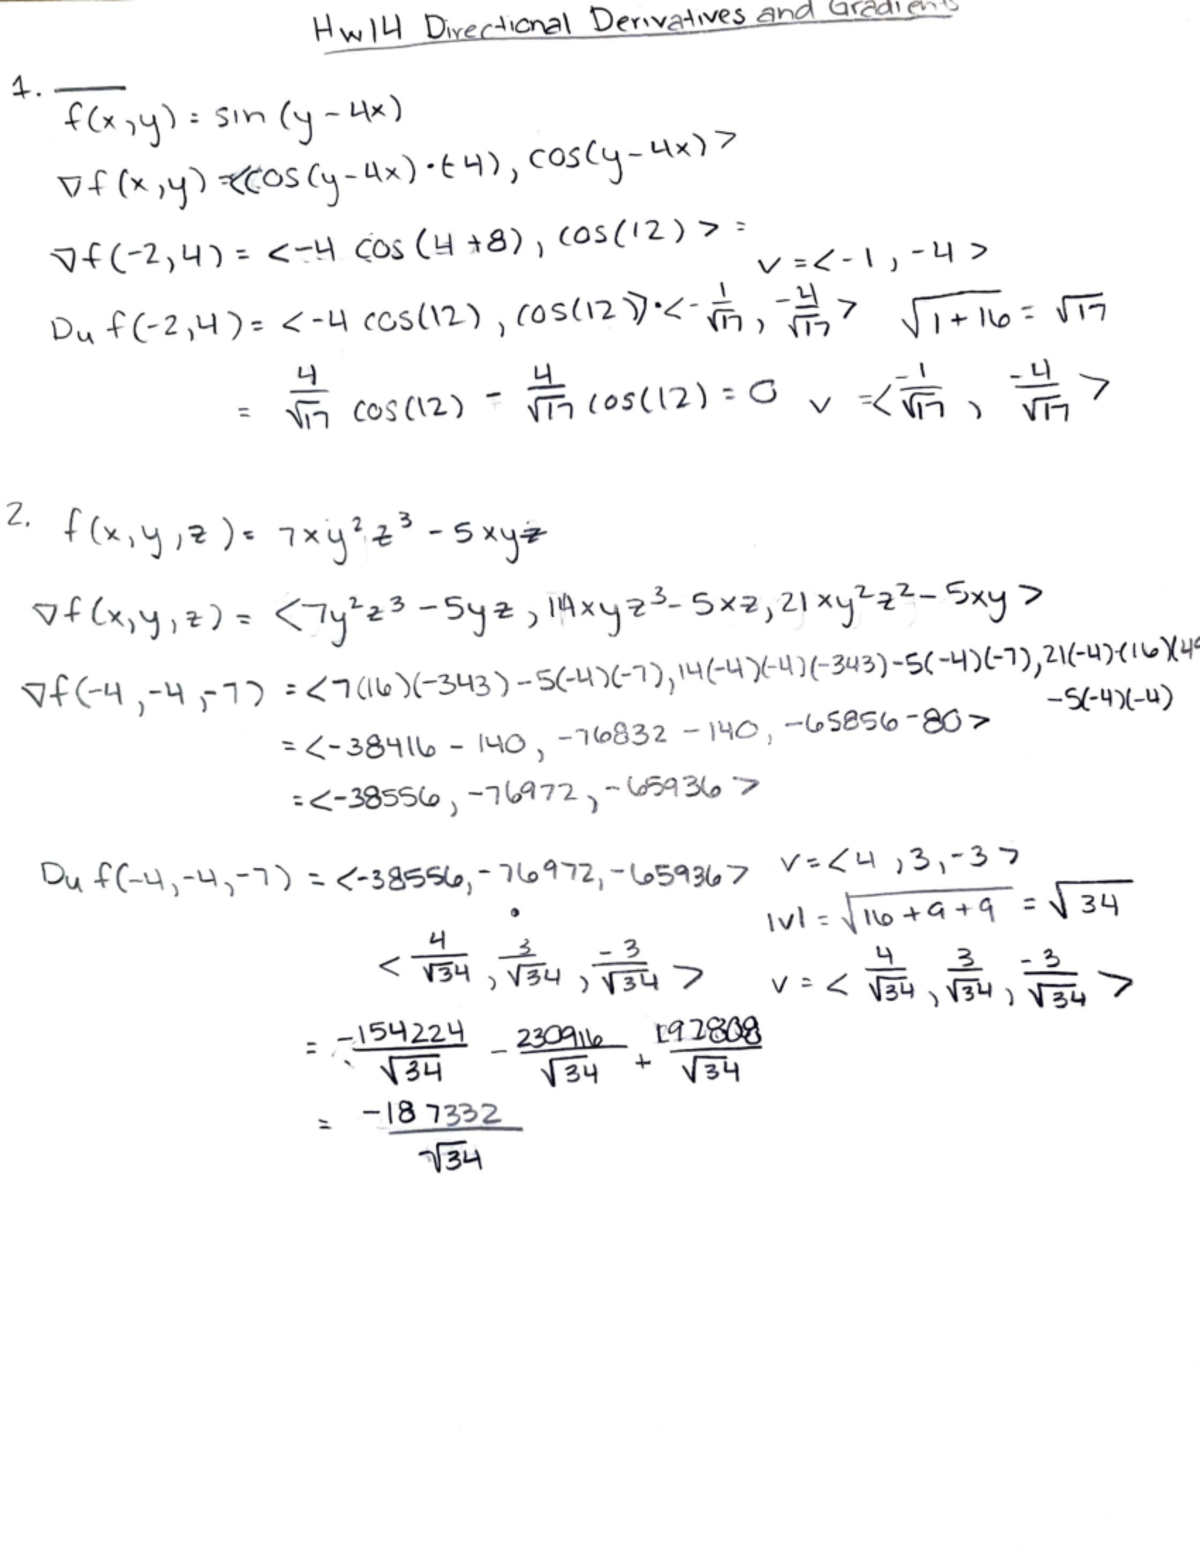 Hw14 Directional Derivatives and Gradients
1.
f(x,y) = sin (y - 4x)
∇f(x,y) = <cos(y-4x)·(-4), cos(y-4x)>
∇f(-2,4) = <-4 cos(4+8), cos(12)> =
v = <-1, -4>
Du f(-2,4) = <-4 cos(12), cos(12)>·<-1/√17, -4/√17> √1+16 = √17
= 4/√17 cos(12) - 4/√17 cos(12) = 0 v = <-1/√17, -4/√17>
2. f(x,y,z) = 7xy²z³ - 5xyz
∇f(x,y,z) = <7y²z³ - 5yz, 14xyz³ - 5xz, 21xy²z² - 5xy>
∇f(-4,-4,-7) = <7(16)(-343) - 5(-4)(-7), 14(-4)(-4)(-343) - 5(-4)(-7), 21(-4)·(16)(49
-5(-4)(-4)
= <-38416 - 140, -76832 - 140, -65856 - 80>
= <-38556, -76972, -65936>
Du f(-4,-4,-7) = <-38556, -76972, -65936> v = <4, 3, -3>
• |v| = √16+9+9 = √34
<4/√34, 3/√34, -3/√34> v = <4/√34, 3/√34, -3/√34>
= -154224/√34 - 230916/√34 + 197808/√34
= -187332/√34